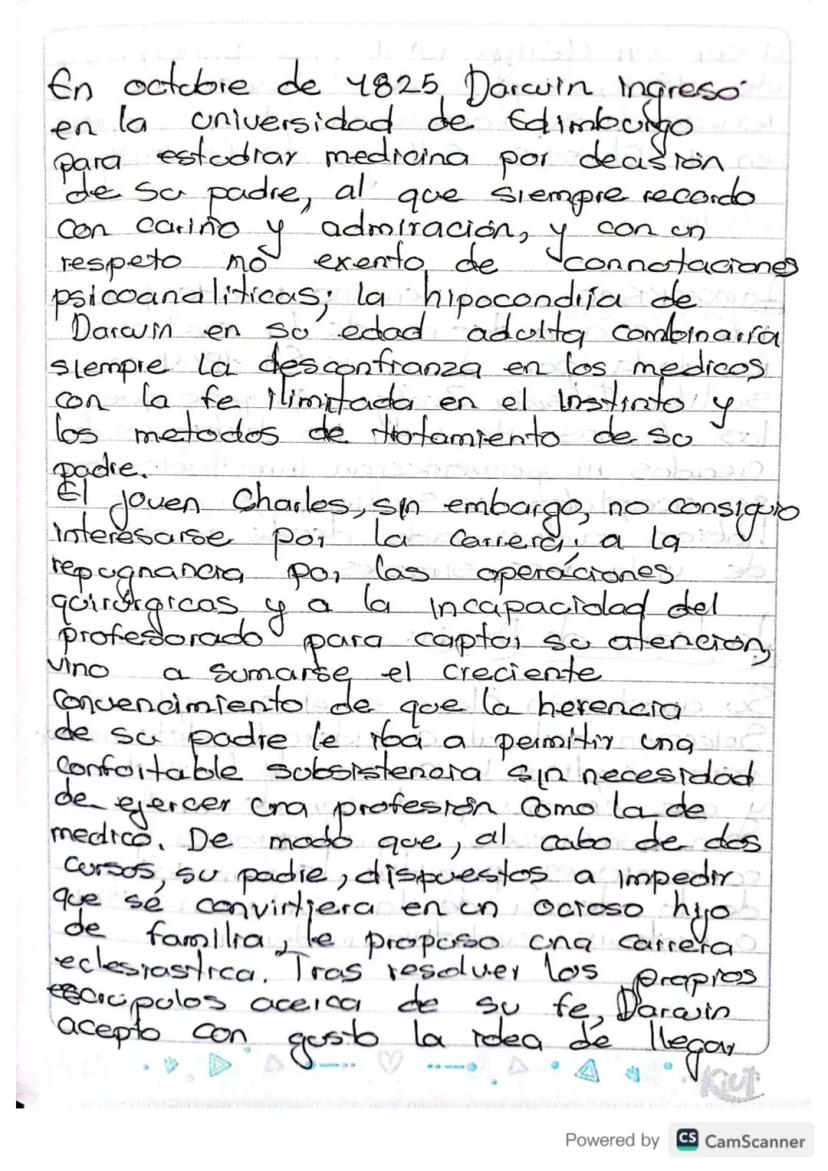 En octubre de 1825 Darwin ingresó
en la universidad de Edimburgo
para estudiar medicina por decisión
de su padre, al que siempre recordo
con cariño y admiración, y con un
respeto no exento de connotaciones
psicoanaliticas; la hipocondrija de
Darwin en su edad adulta combinaria
siempre la desconfianza en los medicos
con la fe ilimitada en el instinto y
los metodos de tratamiento de su
padre.
El joven Charles, sin embargo, no consiguio
interesarse por la carrera; a la
repugnancia por las operaciones
quirúrgicas y a la incapacidad del
profesorado para captar su atención,
vino a sumarse el creciente
convencimiento de que la herencia
de su padre le iba a permitir una
confortable subsistencia sin necesidad
de ejercer una profesión como la de
medico. De modo que, al cabo de dos
cursos, su padre, dispuestos a impedir
que se convirtiera en un ocioso hijo
de familia, le propuso una carrera
eclesiastica. Tras resolver los propios
escrúpulos acerca de su fe, Darwin
acepto con gusto la idea de llegar
Kiut
Powered by CS CamScanner